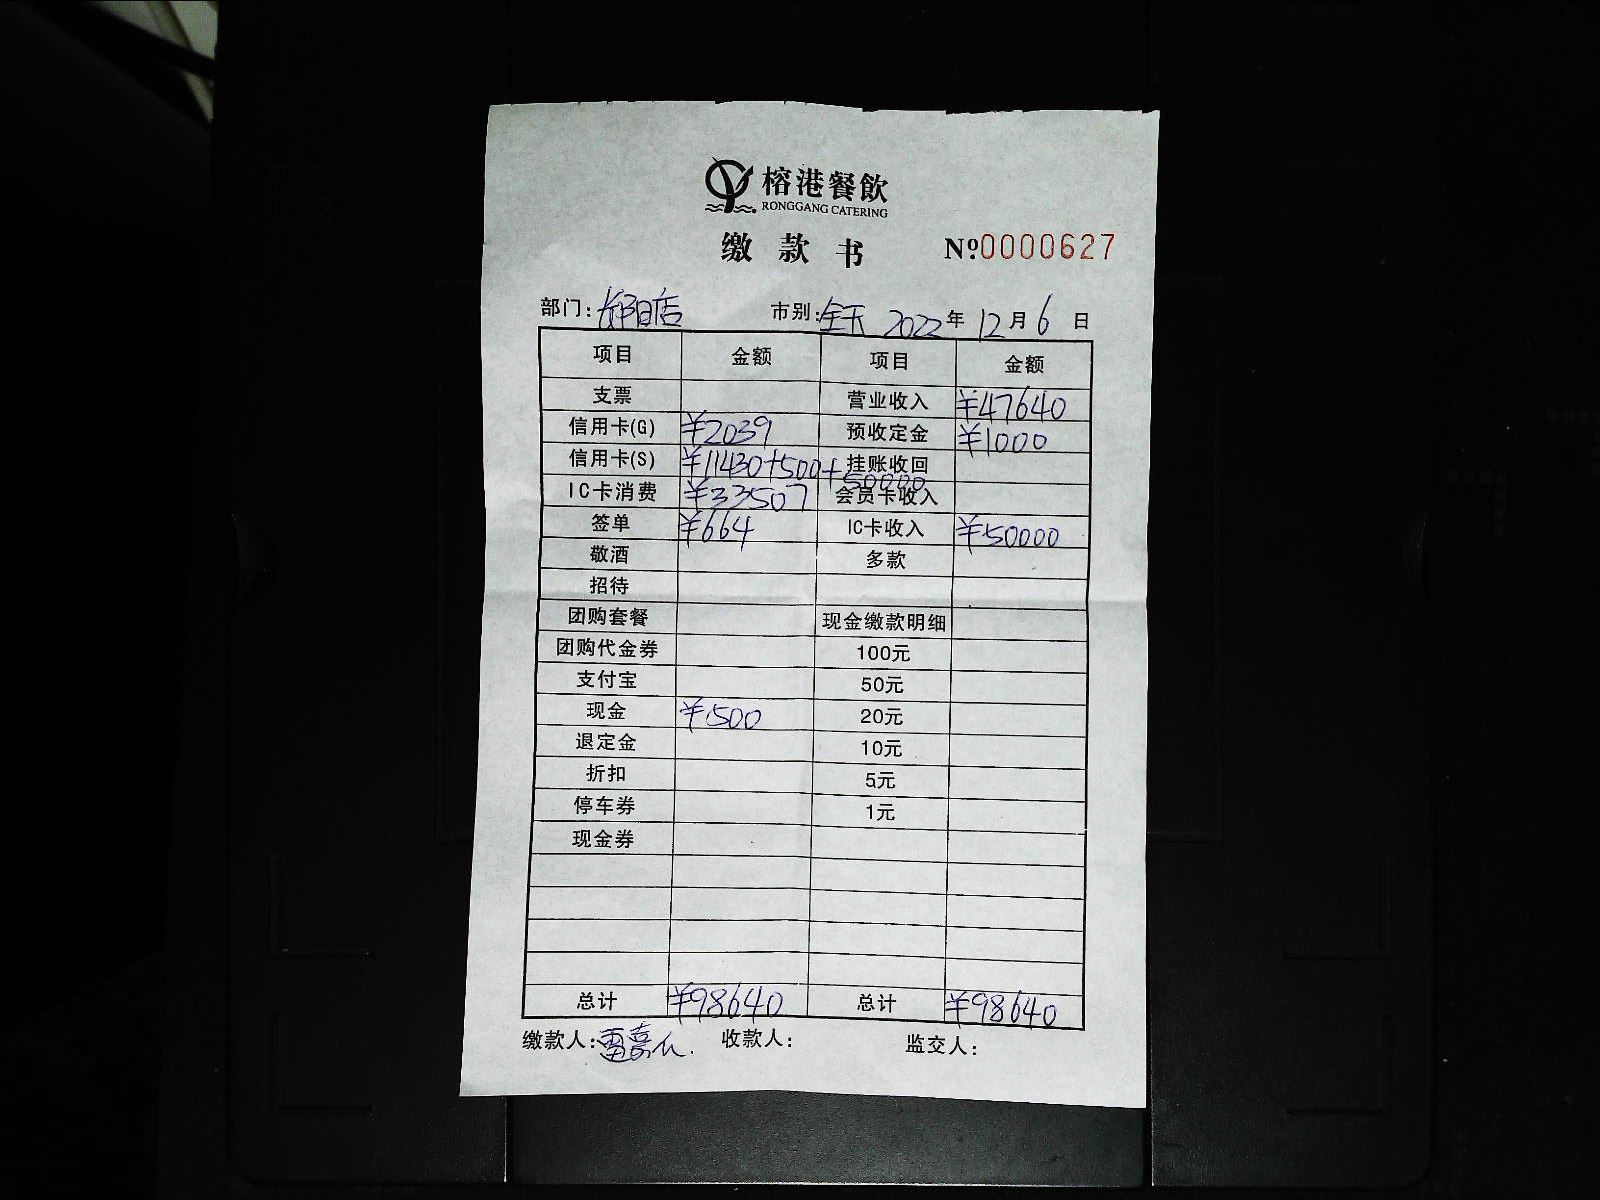 榕港餐飲
RONGGANG CATERING
缴款书 №0000627
部门: 店 市别:全天 2022年12月6日
项目 金额 项目 金额
支票 营业收入 ¥47640
信用卡(G) ¥2039 预收定金 ¥1000
信用卡(S) ¥11430+500+50000 挂账收回
IC卡消费 ¥33507 会员卡收入
签单 ¥664 IC卡收入 ¥50000
敬酒 多款
招待
团购套餐 现金缴款明细
团购代金券 100元
支付宝 50元
现金 ¥500 20元
退定金 10元
折扣 5元
停车券 1元
现金券
总计 ¥98640 总计 ¥98640
缴款人: 收款人: 监交人: